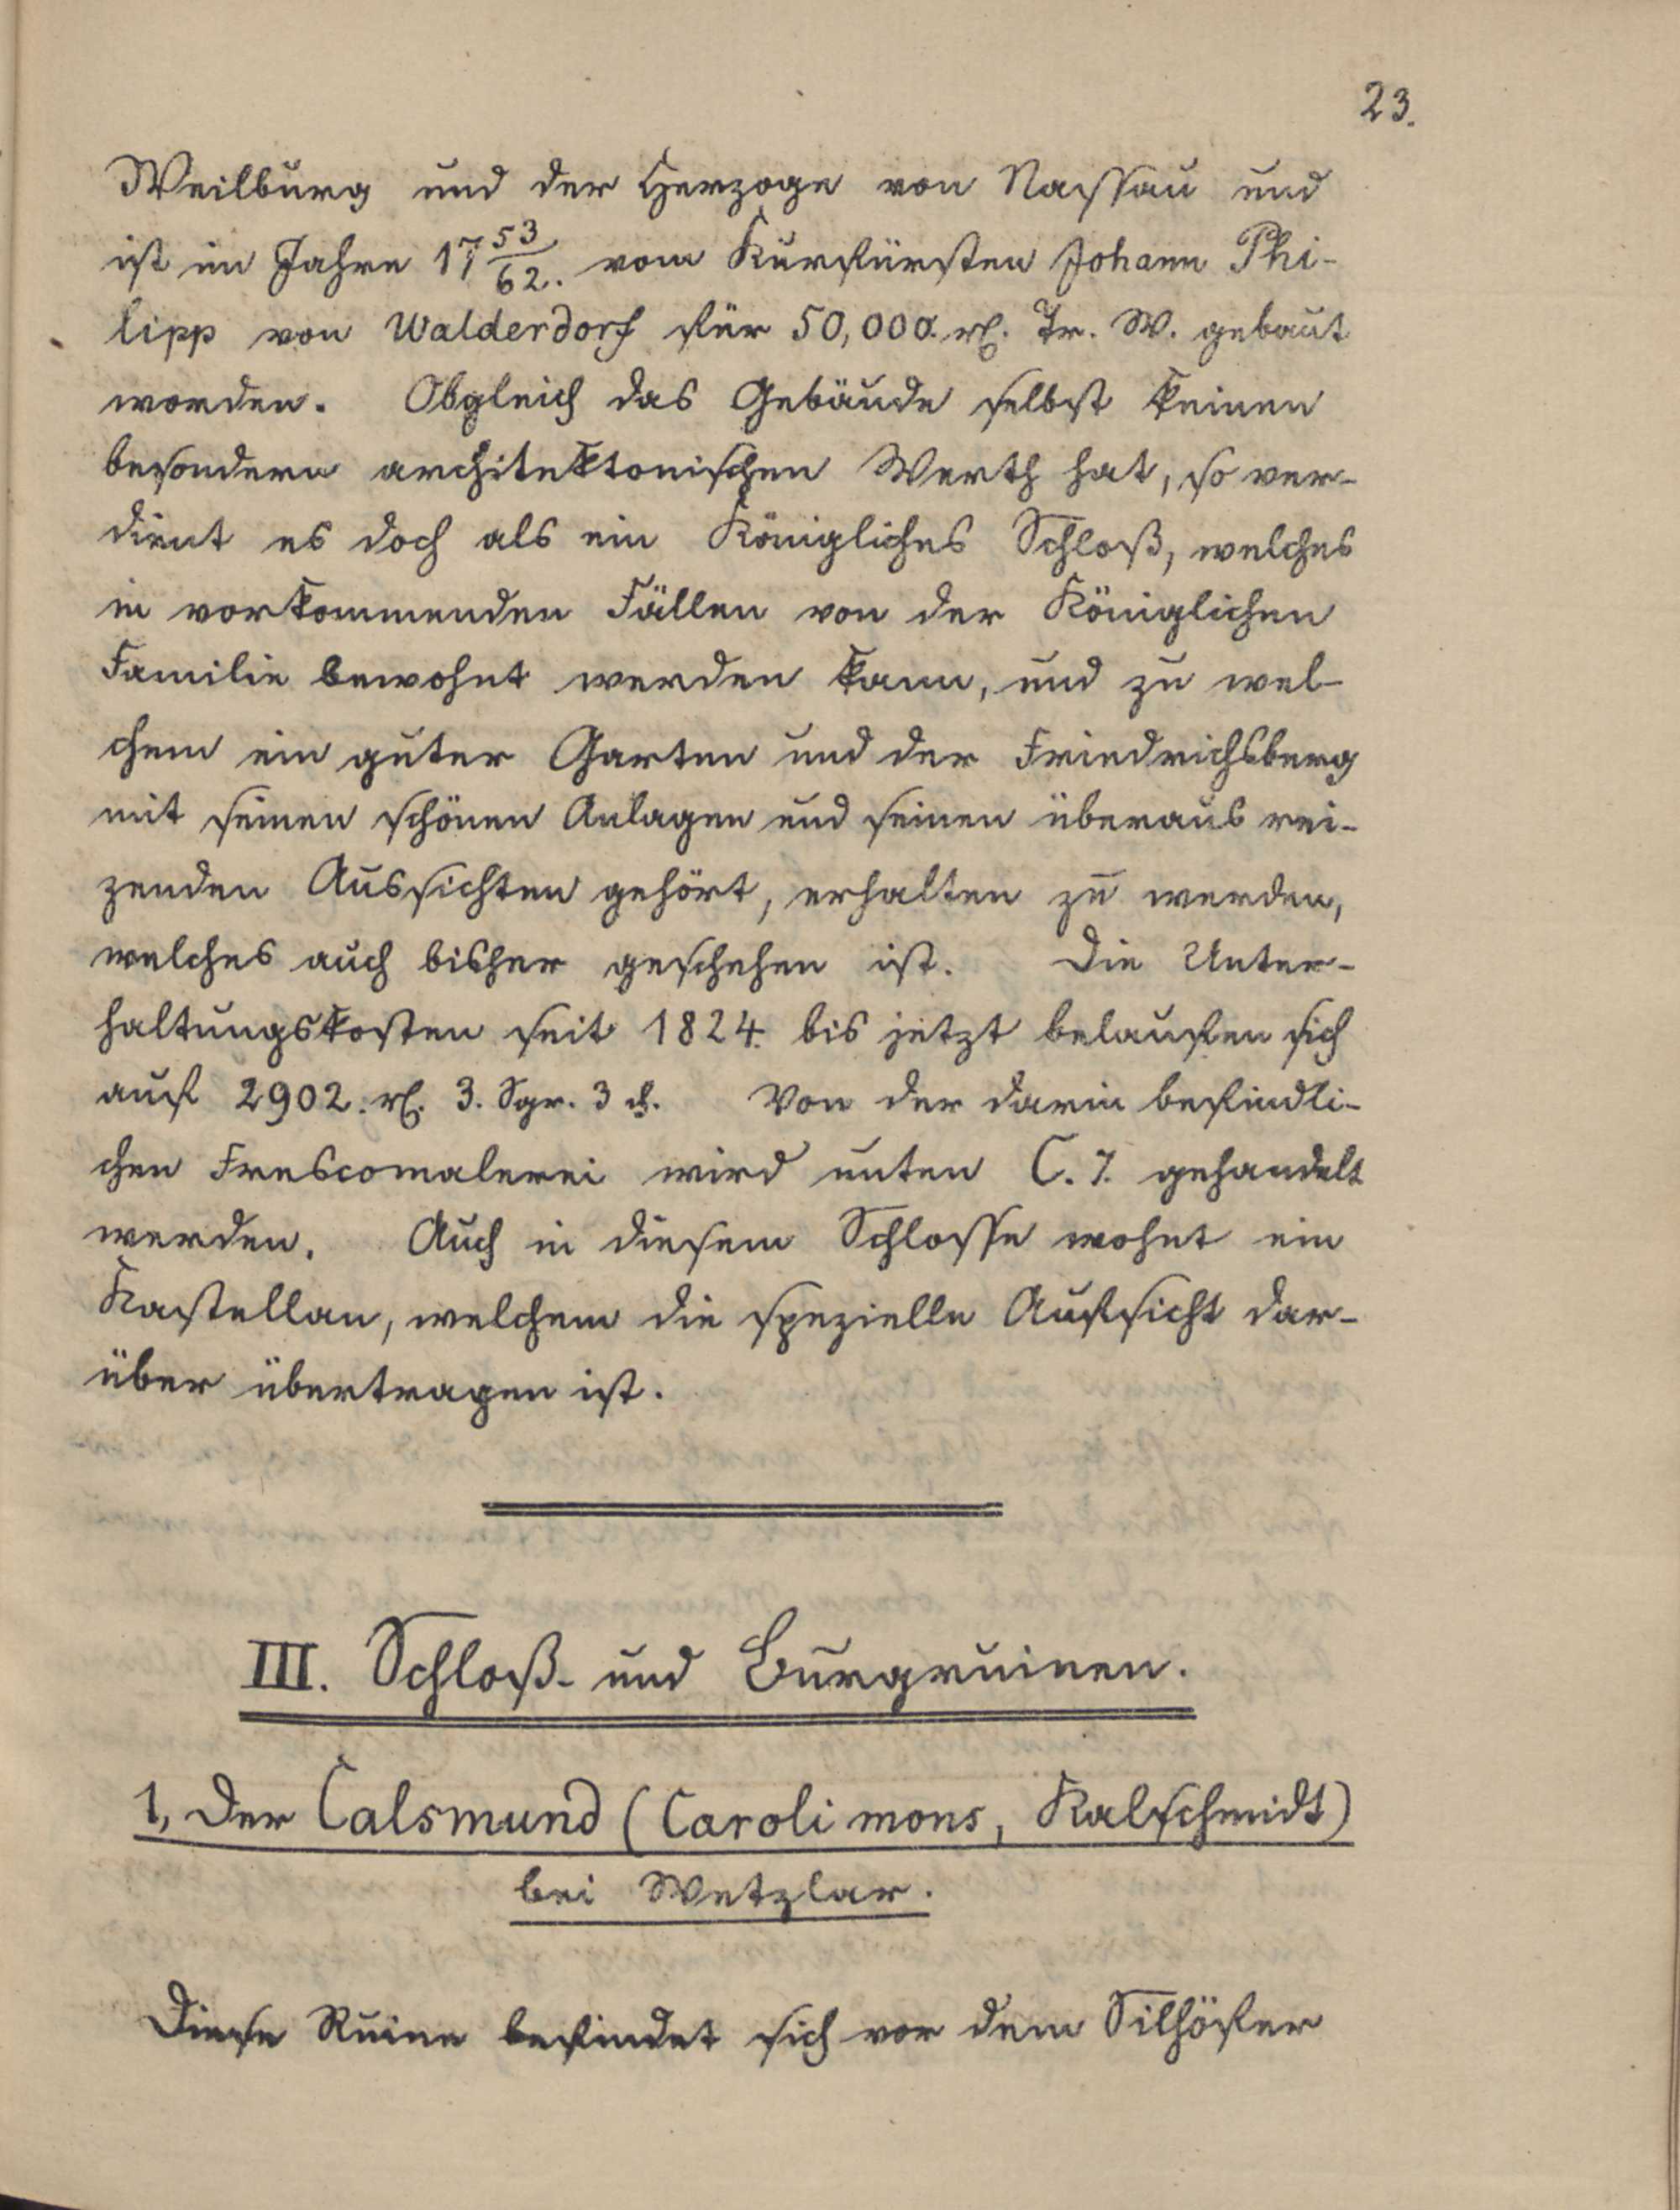 23.
Weilburg und der Herzoge von Nassau und
ist im Jahre 17 53/62. vom Kurfürsten Johann Phi-
lipp von Walderdorf für 50,000. rl. Tr. W. gebaut
worden. Obgleich das Gebäude selbst keinen
besondern architektonischen Werth hat, so ver-
dient es doch als ein Königliches Schloß, welches
in vorkommenden Fällen von der Königlichen
Familie bewohnt werden kann, und zu wel-
chem ein guter Garten und der Friedrichsberg
mit seinen schönen Anlagen und seinen überaus rei-
zenden Aussichten gehört, erhalten zu werden,
welches auch bisher geschehen ist. Die Unter-
haltungskosten seit 1824. bis jetzt belaufen sich
auf 2902. rl. 3. Sgr. 3 d. Von der darin befindli-
chen Frescomalerei wird unten C. 7. gehandelt
werden. Auch in diesem Schlosse wohnt ein
Kastellan, welchem die spezielle Aufsicht dar-
über übertragen ist.
III. Schloß- und Burgruinen.
1, Der Calsmund (Caroli mons, Kalschmidt)
bei Wetzlar.
Diese Ruine befindet sich vor dem Silhöfer